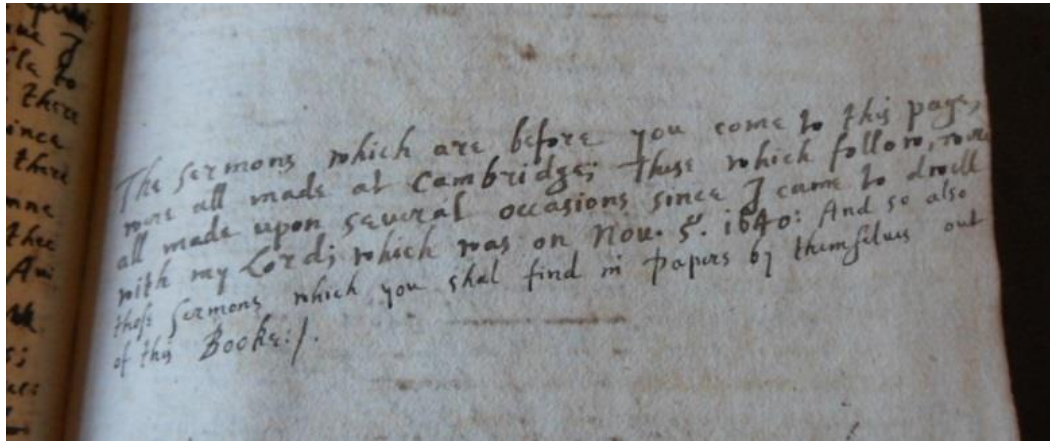 The sermons which are before you come to this page,
were all made at Cambridge; These which follow, were
all made upon several occasions since I came to dwell
with my Lord; which was on Nov. 5. 1640: And so also
those sermons which you shal find in papers by themselves out
of this Booke:/.
ince
there